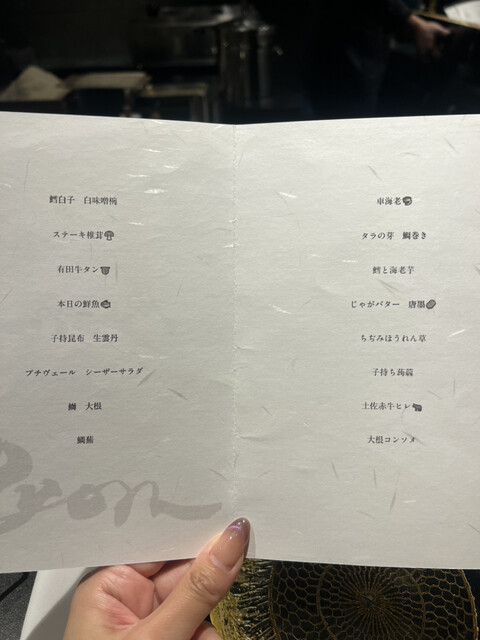 鱈白子 白味噌椀
ステーキ椎茸
有田牛タン
本日の鮮魚
子持昆布 生雲丹
プチヴェール シーザーサラダ
鰤 大根
鯛蕪
車海老
タラの芽 鯛巻き
鱈と海老芋
じゃがバター 唐墨
ちぢみほうれん草
子持ち蒟蒻
土佐赤牛ヒレ
大根コンソメ